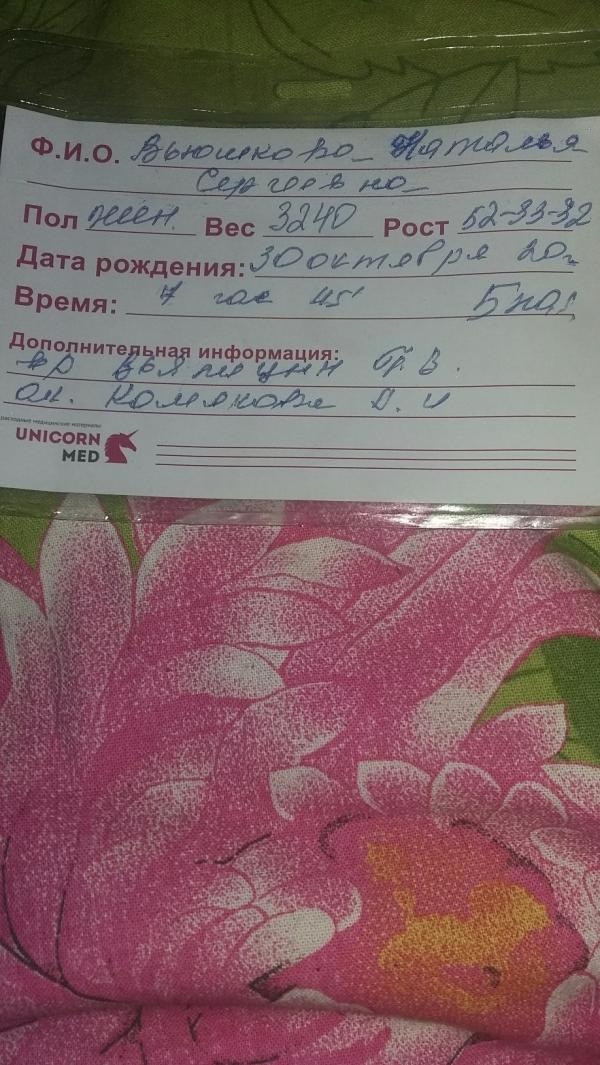 Ф.И.О. Вьюшкова Наталья
Сергеевна
Пол жен. Вес 3240 Рост 52-33-32
Дата рождения: 30 октября 20г
Время: 7 час 45'
Дополнительная информация:
вр Г. В.
ак. Д. И
расходные медицинские материалы
UNICORN
MED